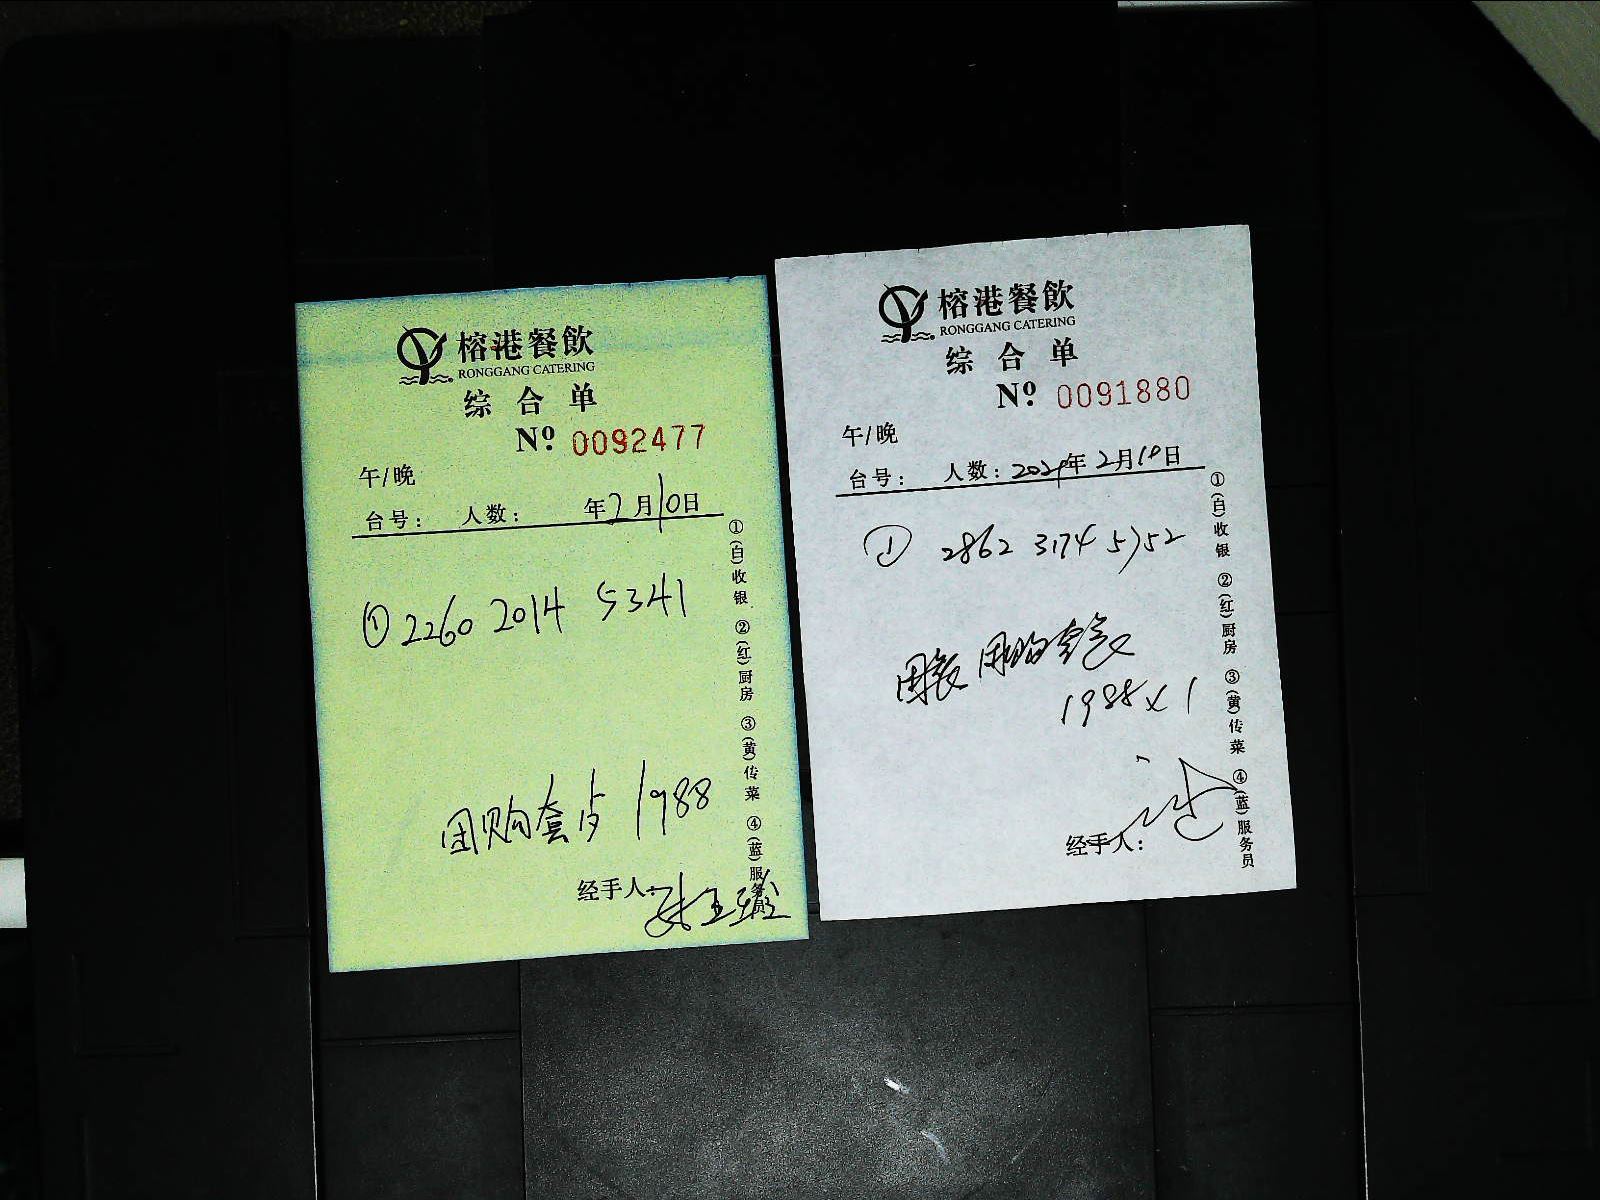 榕港餐飲
RONGGANG CATERING
综合单
Nº 0092477
午/晚
台号: 人数: 年2月10日
① 2260 2014 5341
团购套占 1988
经手人:
①(白)收银 ②(红)厨房 ③(黄)传菜 ④(蓝)服务员
榕港餐飲
RONGGANG CATERING
综合单
Nº 0091880
午/晚
台号: 人数: 2024年2月10日
① 2862 3174 5752
团购套
1988×1
经手人:
①(白)收银 ②(红)厨房 ③(黄)传菜 ④(蓝)服务员